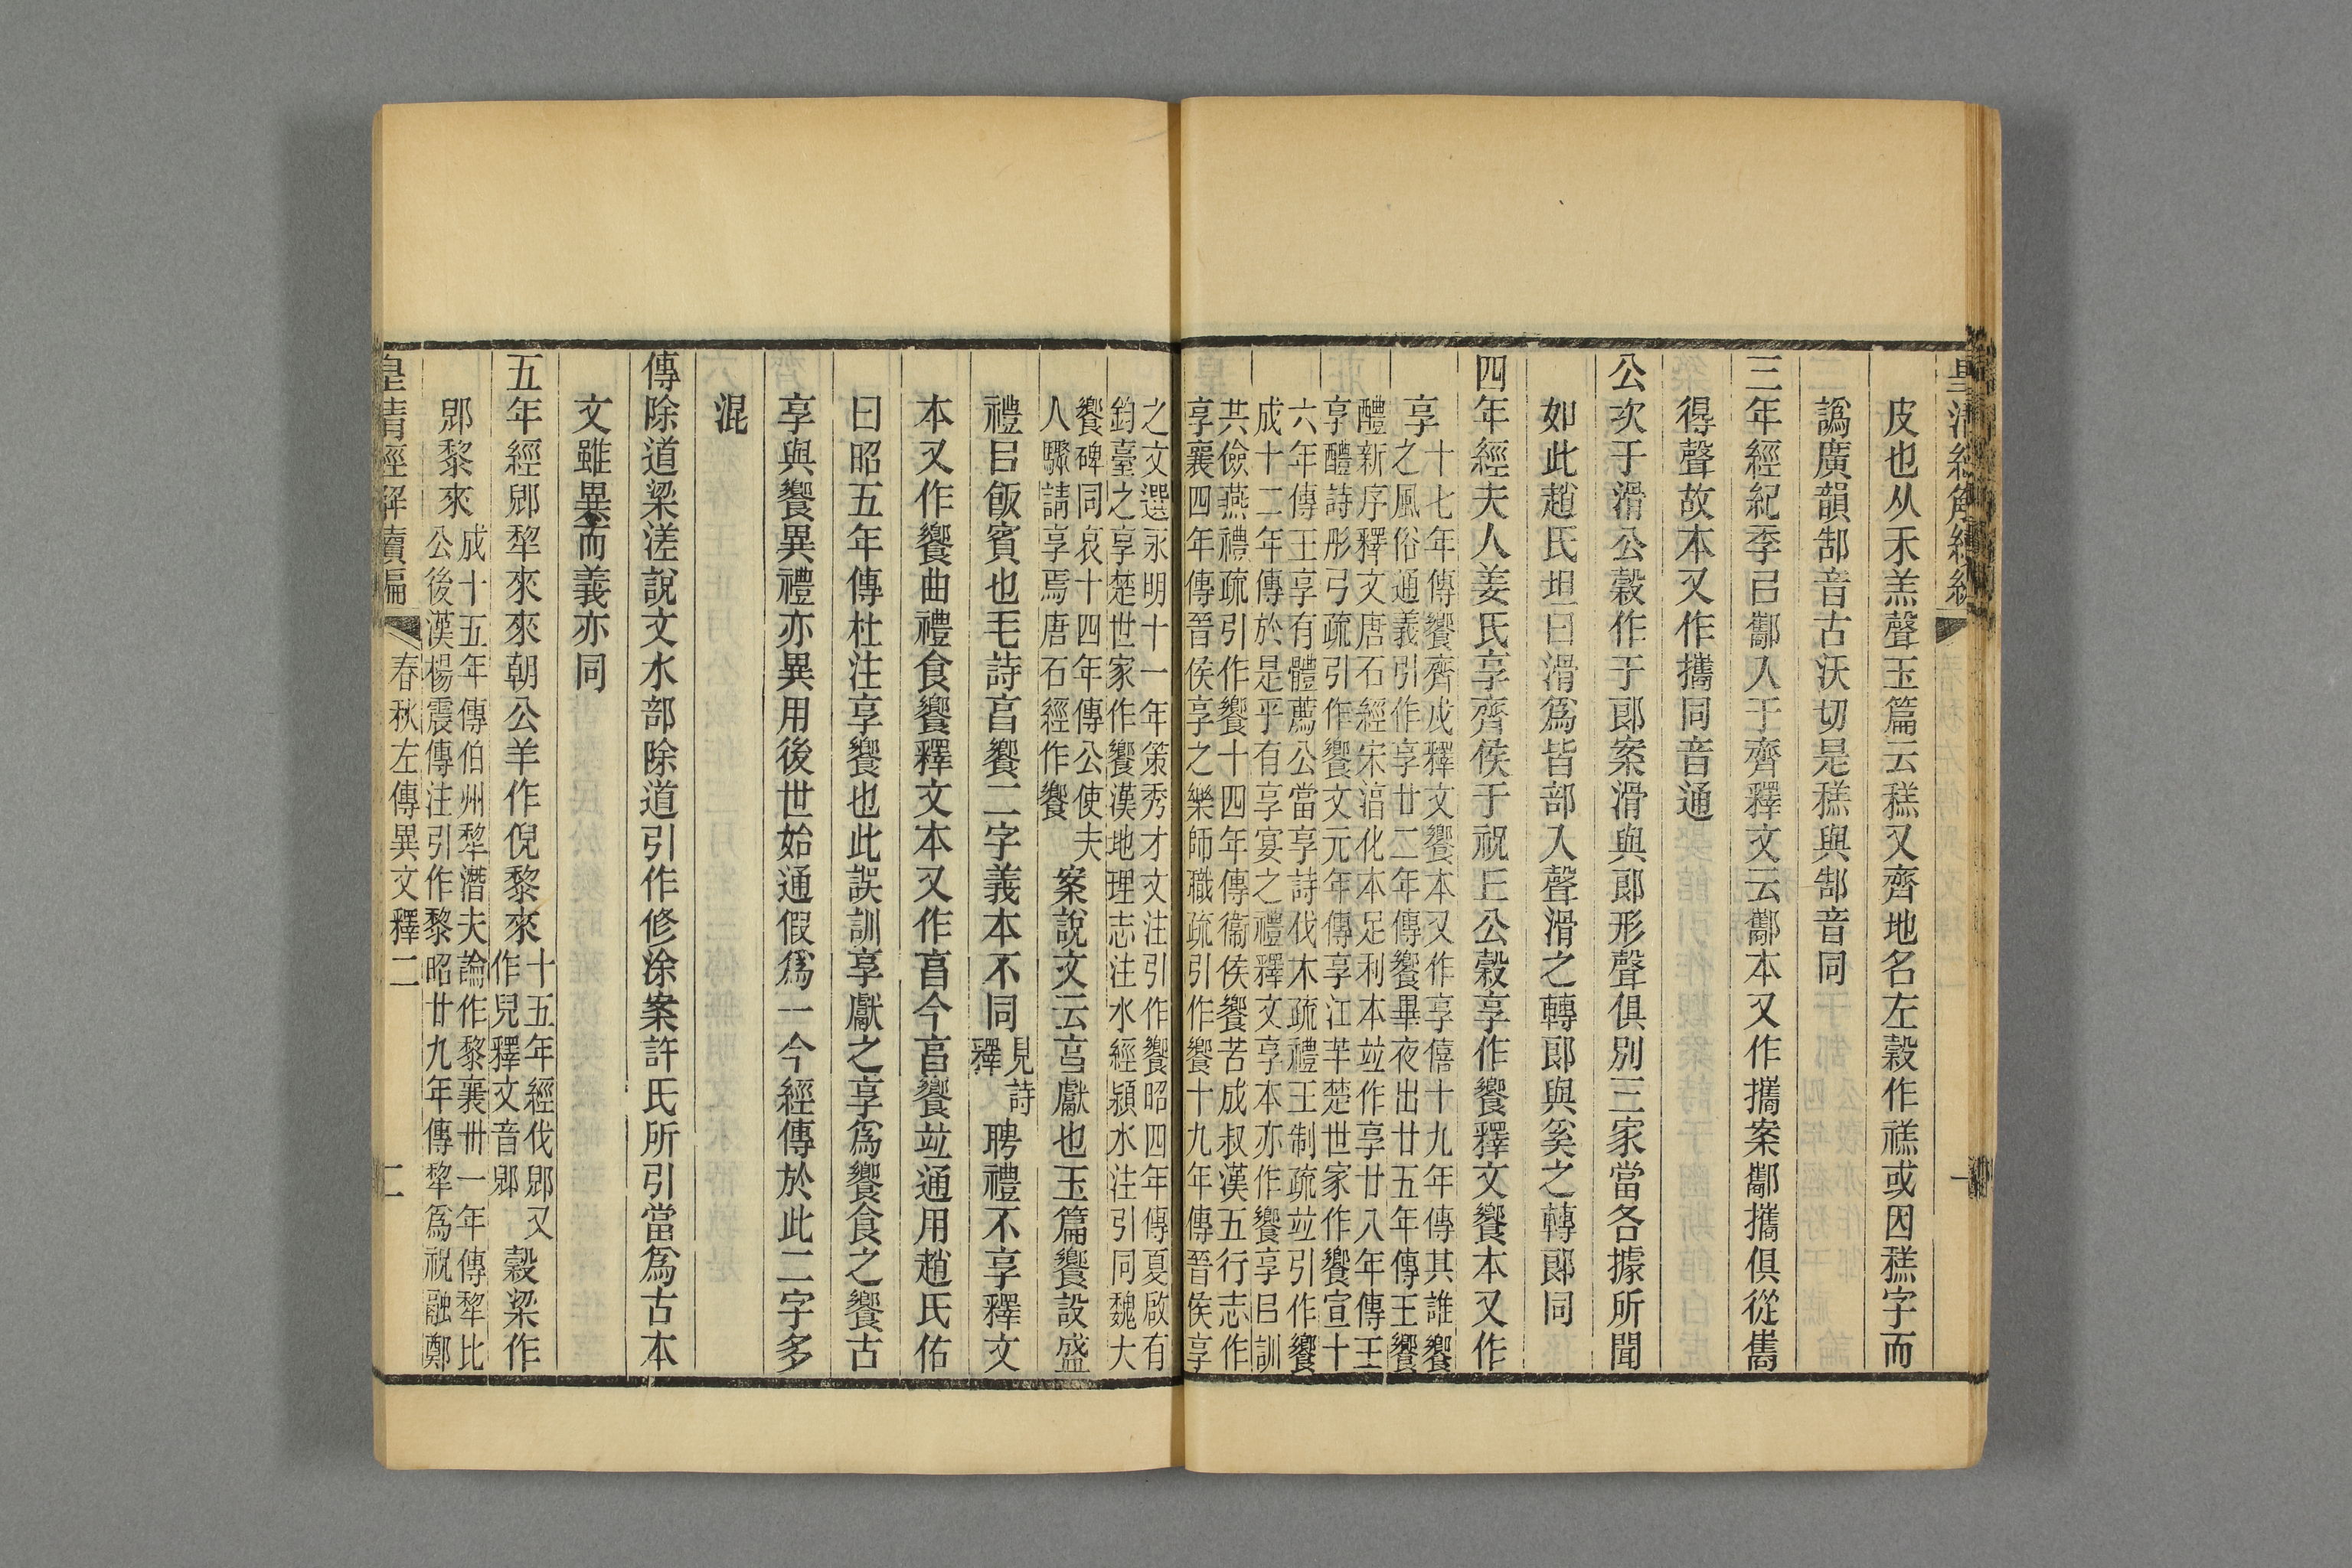 皮也从禾羔聲玉篇云䅵又齊地名左穀作禚或因䅵字而
譌廣韻郜音古沃切是䅵與郜音同
三年經紀季㠯酅入于齊釋文云酅本又作攜案酅攜俱從雟
得聲故本又作攜同音通
公次于滑公穀作于郎案滑與郎形聲俱別三家當各據所聞
如此趙氏坦曰滑爲皆部入聲滑之轉郎與奚之轉郎同
四年經夫人姜氏享齊侯于祝丘公穀享作饗釋文饗本又作
享十七年傳饗齊成釋文饗本又作享僖十九年傳其誰饗
之風俗通義引作享廿二年傳饗畢夜出廿五年傳王饗
醴新序釋文唐石經宋淳化本足利本竝作享廿八年傳王
享醴詩彤弓疏引作饗文元年傳享江羋楚世家作饗宣十
六年傳王享有體薦公當享詩伐木疏禮王制疏竝引作饗
成十二年傳於是乎有享宴之禮釋文享本亦作饗享㠯訓
共儉燕禮疏引作饗十四年傳衞侯饗苦成叔漢五行志作
享襄四年傳晉侯享之樂師職疏引作饗十九年傳晉侯享
之文選永明十一年策秀才文注引作饗昭四年傳夏啟有
鈞臺之享楚世家作饗漢地理志注水經潁水注引同魏大
饗碑同哀十四年傳公使夫
人驟請享焉唐石經作饗
案說文云亯獻也玉篇饗設盛
禮㠯飯賓也毛詩亯饗二字義本不同見詩釋聘禮不享釋文
本又作饗曲禮食饗釋文本又作亯今亯饗竝通用趙氏佑
曰昭五年傳杜注享饗也此誤訓享獻之享爲饗食之饗古
享與饗異禮亦異用後世始通假爲一今經傳於此二字多
混
傳除道梁溠說文水部除道引作修涂案許氏所引當爲古本
文雖異而義亦同
五年經郳犂來來朝公羊作倪黎來十五年經伐郳又作兒釋文音郳穀梁作
郳黎來成十五年傳伯州犂潛夫論作黎襄卅一年傳犂比
公後漢楊震傳注引作黎昭廿九年傳犂爲祝融鄭
皇清經解續編
春秋左傳異文釋二
二